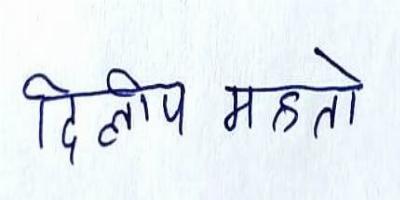 दिलीप महतो